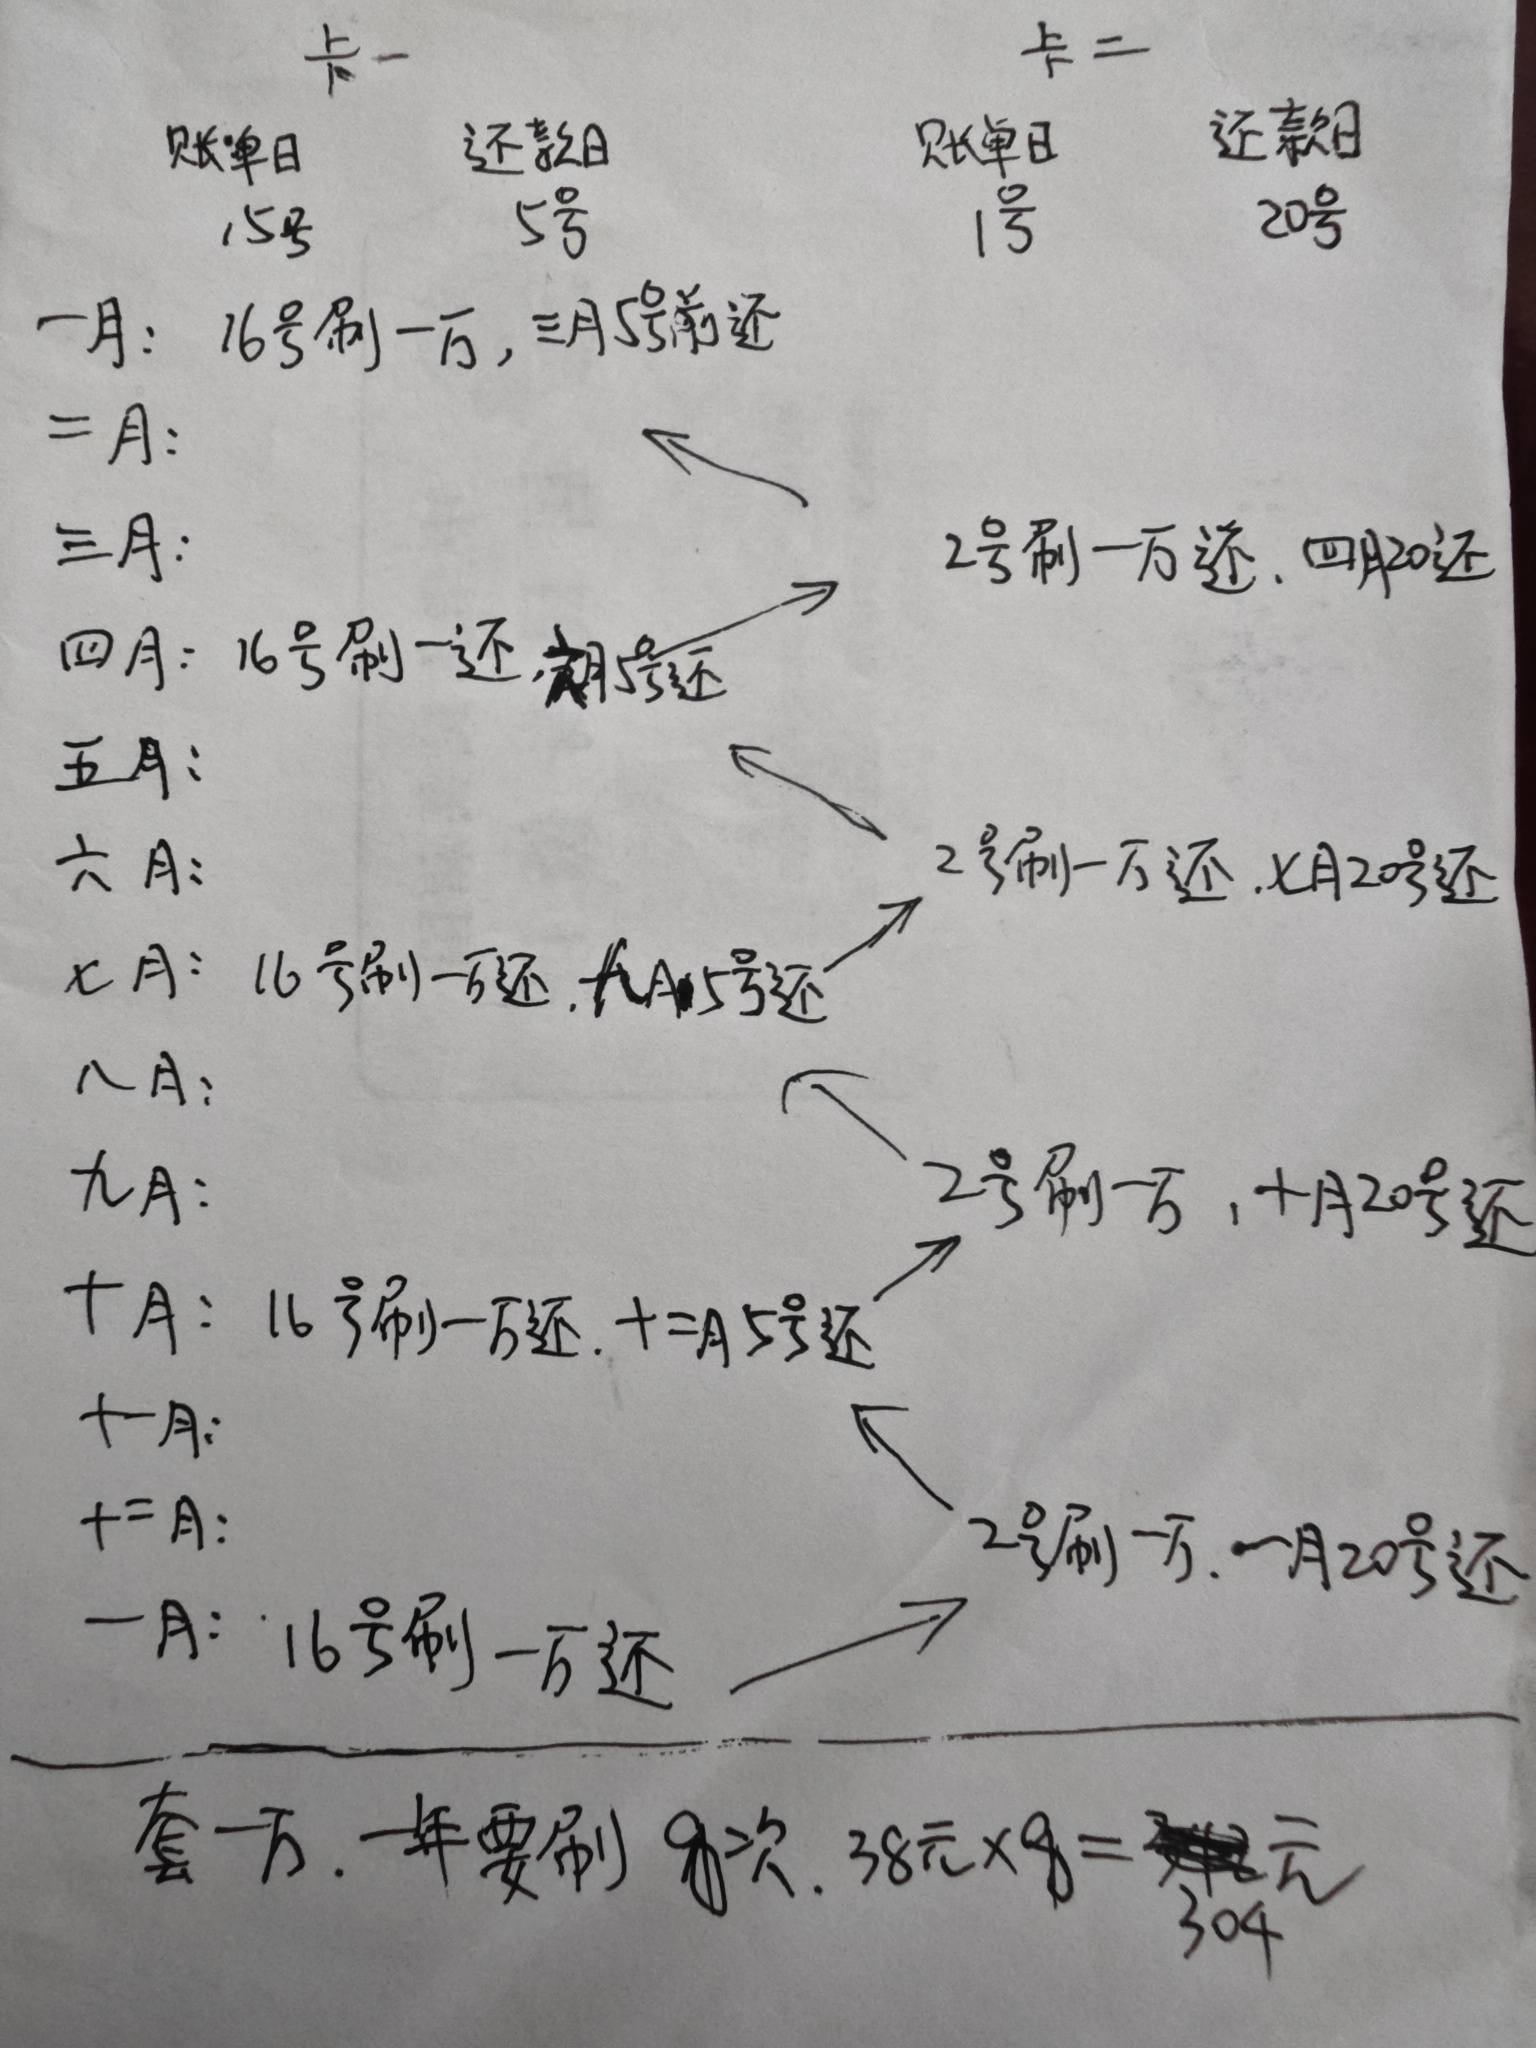 卡一 卡二
账单日 还款日 账单日 还款日
15号 5号 1号 20号
一月：16号刷一万，三月5号前还
二月：
三月： 2号刷一万还．四月20还
四月：16号刷一还．六月5号还
五月：
六月： 2号刷一万还．七月20号还
七月：16号刷一万还．九月5号还
八月：
九月： 2号刷一万，十月20号还
十月：16号刷一万还．十二月5号还
十一月：
十二月： 2号刷一万．一月20号还
一月：16号刷一万还
套一万．一年要刷8次．38元×8=元
304